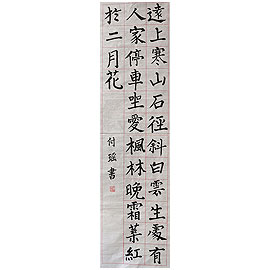 遠上寒山石徑斜白雲生處有
人家停車坐愛楓林晚霜葉紅
於二月花
付瑶書